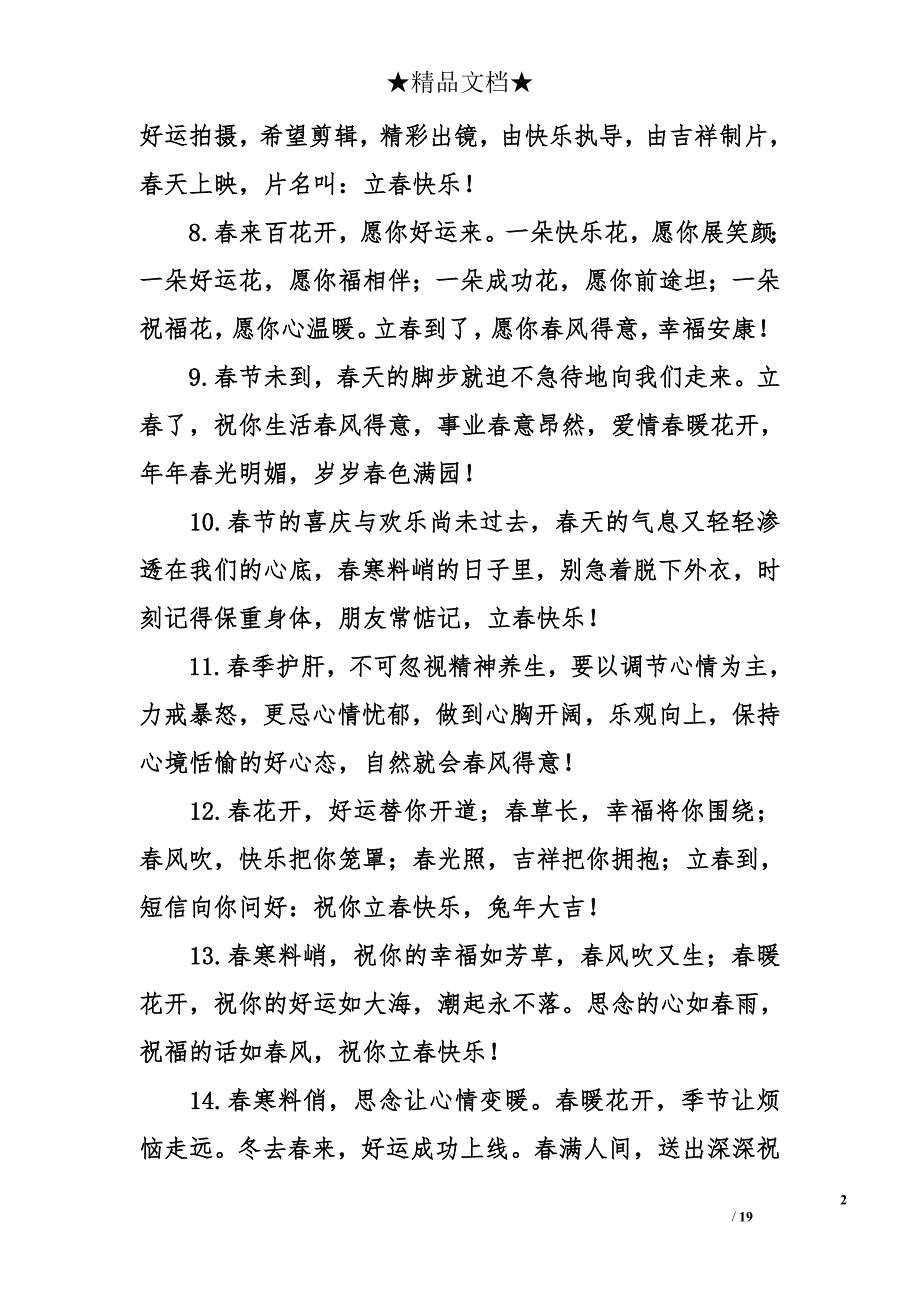 ★精品文档★
好运拍摄，希望剪辑，精彩出镜，由快乐执导，由吉祥制片，
春天上映，片名叫：立春快乐！
8.春来百花开，愿你好运来。一朵快乐花，愿你展笑颜；
一朵好运花，愿你福相伴；一朵成功花，愿你前途坦；一朵
祝福花，愿你心温暖。立春到了，愿你春风得意，幸福安康！
9.春节未到，春天的脚步就迫不急待地向我们走来。立
春了，祝你生活春风得意，事业春意昂然，爱情春暖花开，
年年春光明媚，岁岁春色满园！
10.春节的喜庆与欢乐尚未过去，春天的气息又轻轻渗
透在我们的心底，春寒料峭的日子里，别急着脱下外衣，时
刻记得保重身体，朋友常惦记，立春快乐！
11.春季护肝，不可忽视精神养生，要以调节心情为主，
力戒暴怒，更忌心情忧郁，做到心胸开阔，乐观向上，保持
心境恬愉的好心态，自然就会春风得意！
12.春花开，好运替你开道；春草长，幸福将你围绕；
春风吹，快乐把你笼罩；春光照，吉祥把你拥抱；立春到，
短信向你问好：祝你立春快乐，兔年大吉！
13.春寒料峭，祝你的幸福如芳草，春风吹又生；春暖
花开，祝你的好运如大海，潮起永不落。思念的心如春雨，
祝福的话如春风，祝你立春快乐！
14.春寒料俏，思念让心情变暖。春暖花开，季节让烦
恼走远。冬去春来，好运成功上线。春满人间，送出深深祝
2
/ 19